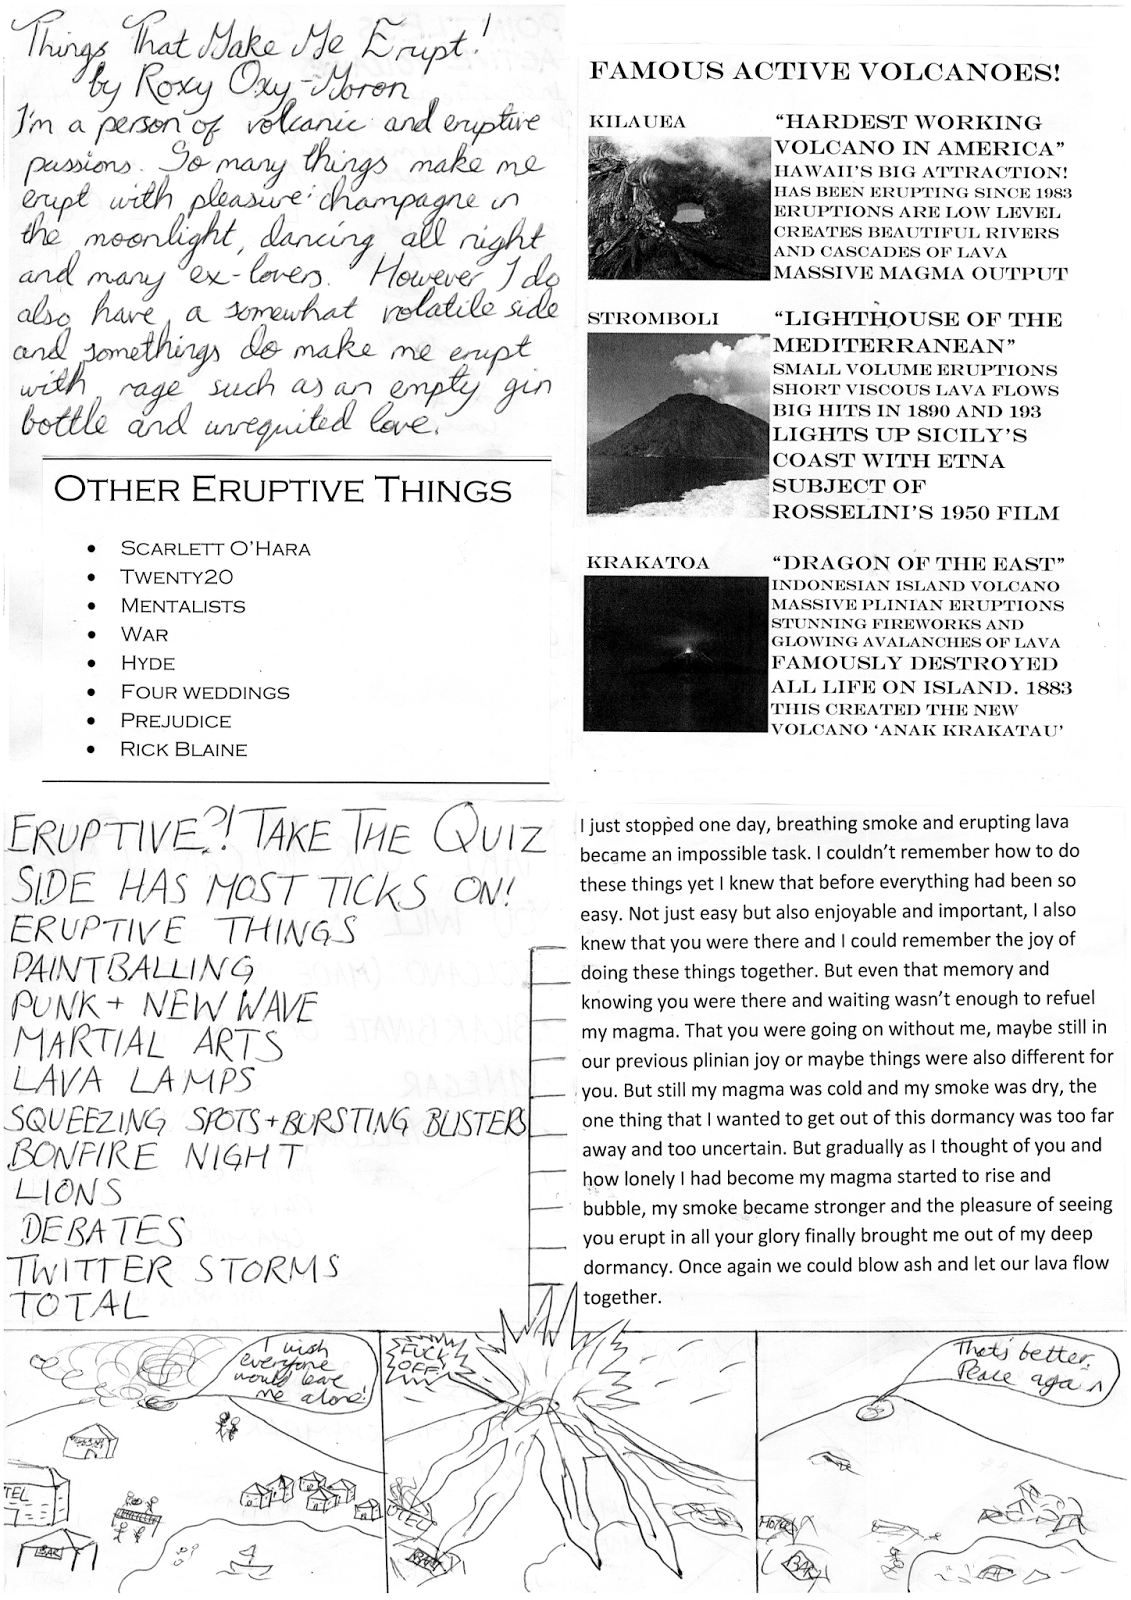 Things That Make Me Erupt!
by Roxy Oxy-Moron
I'm a person of volcanic and eruptive
passions. So many things make me
erupt with pleasure: champagne in
the moonlight, dancing all night
and many ex-lovers. However I do
also have a somewhat volatile side
and somethings do make me erupt
with rage such as an empty gin
bottle and unrequited love.
OTHER ERUPTIVE THINGS
• SCARLETT O'HARA
• TWENTY20
• MENTALISTS
• WAR
• HYDE
• FOUR WEDDINGS
• PREJUDICE
• RICK BLAINE
FAMOUS ACTIVE VOLCANOES!
KILAUEA
"HARDEST WORKING
VOLCANO IN AMERICA"
HAWAII'S BIG ATTRACTION!
HAS BEEN ERUPTING SINCE 1983
ERUPTIONS ARE LOW LEVEL
CREATES BEAUTIFUL RIVERS
AND CASCADES OF LAVA
MASSIVE MAGMA OUTPUT
STROMBOLI
"LIGHTHOUSE OF THE
MEDITERRANEAN"
SMALL VOLUME ERUPTIONS
SHORT VISCOUS LAVA FLOWS
BIG HITS IN 1890 AND 193
LIGHTS UP SICILY'S
COAST WITH ETNA
SUBJECT OF
ROSSELINI'S 1950 FILM
KRAKATOA
"DRAGON OF THE EAST"
INDONESIAN ISLAND VOLCANO
MASSIVE PLINIAN ERUPTIONS
STUNNING FIREWORKS AND
GLOWING AVALANCHES OF LAVA
FAMOUSLY DESTROYED
ALL LIFE ON ISLAND. 1883
THIS CREATED THE NEW
VOLCANO 'ANAK KRAKATAU'
ERUPTIVE?! TAKE THE QUIZ
SIDE HAS MOST TICKS ON!
ERUPTIVE THINGS
PAINTBALLING
PUNK + NEW WAVE
MARTIAL ARTS
LAVA LAMPS
SQUEEZING SPOTS + BURSTING BLISTERS
BONFIRE NIGHT
LIONS
DEBATES
TWITTER STORMS
TOTAL
I just stopped one day, breathing smoke and erupting lava
became an impossible task. I couldn't remember how to do
these things yet I knew that before everything had been so
easy. Not just easy but also enjoyable and important, I also
knew that you were there and I could remember the joy of
doing these things together. But even that memory and
knowing you were there and waiting wasn't enough to refuel
my magma. That you were going on without me, maybe still in
our previous plinian joy or maybe things were also different for
you. But still my magma was cold and my smoke was dry, the
one thing that I wanted to get out of this dormancy was too far
away and too uncertain. But gradually as I thought of you and
how lonely I had become my magma started to rise and
bubble, my smoke became stronger and the pleasure of seeing
you erupt in all your glory finally brought me out of my deep
dormancy. Once again we could blow ash and let our lava flow
together.
I wish
everyone
would leave
me alone!
TEL
BAR
FUCK
OFF!
OTEL
BAR
That's better.
Peace again
HOTEL
BAR